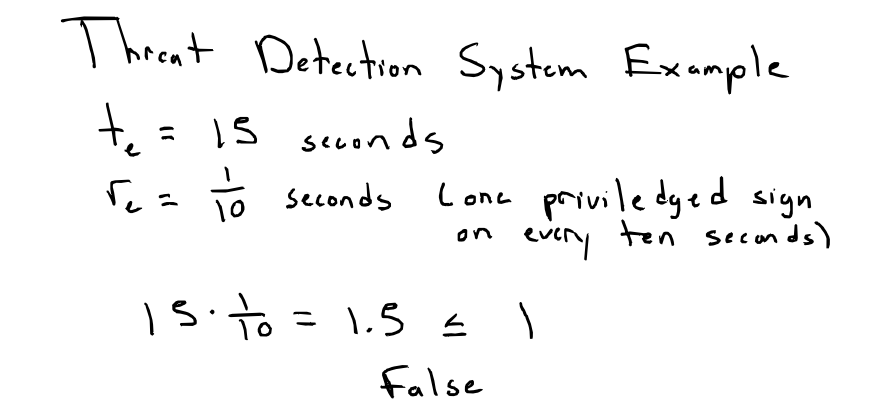 Threat Detection System Example
tₑ = 15 seconds
rₑ = 1/10 seconds (one priviledged sign
on every ten seconds)
15 · 1/10 = 1.5 ≤ 1
False